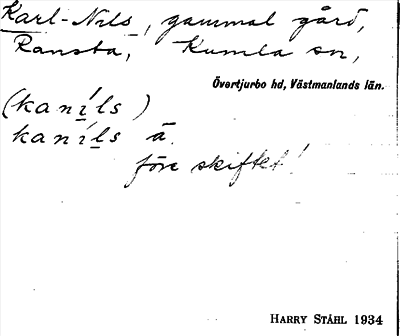 Karl-Nils, gammal gård,
Ransta, Kumla sn,
Övertjurbo hd, Västmanlands län.
(kaníls)
kaníls å.
före skiftet!
HARRY STÅHL 1934